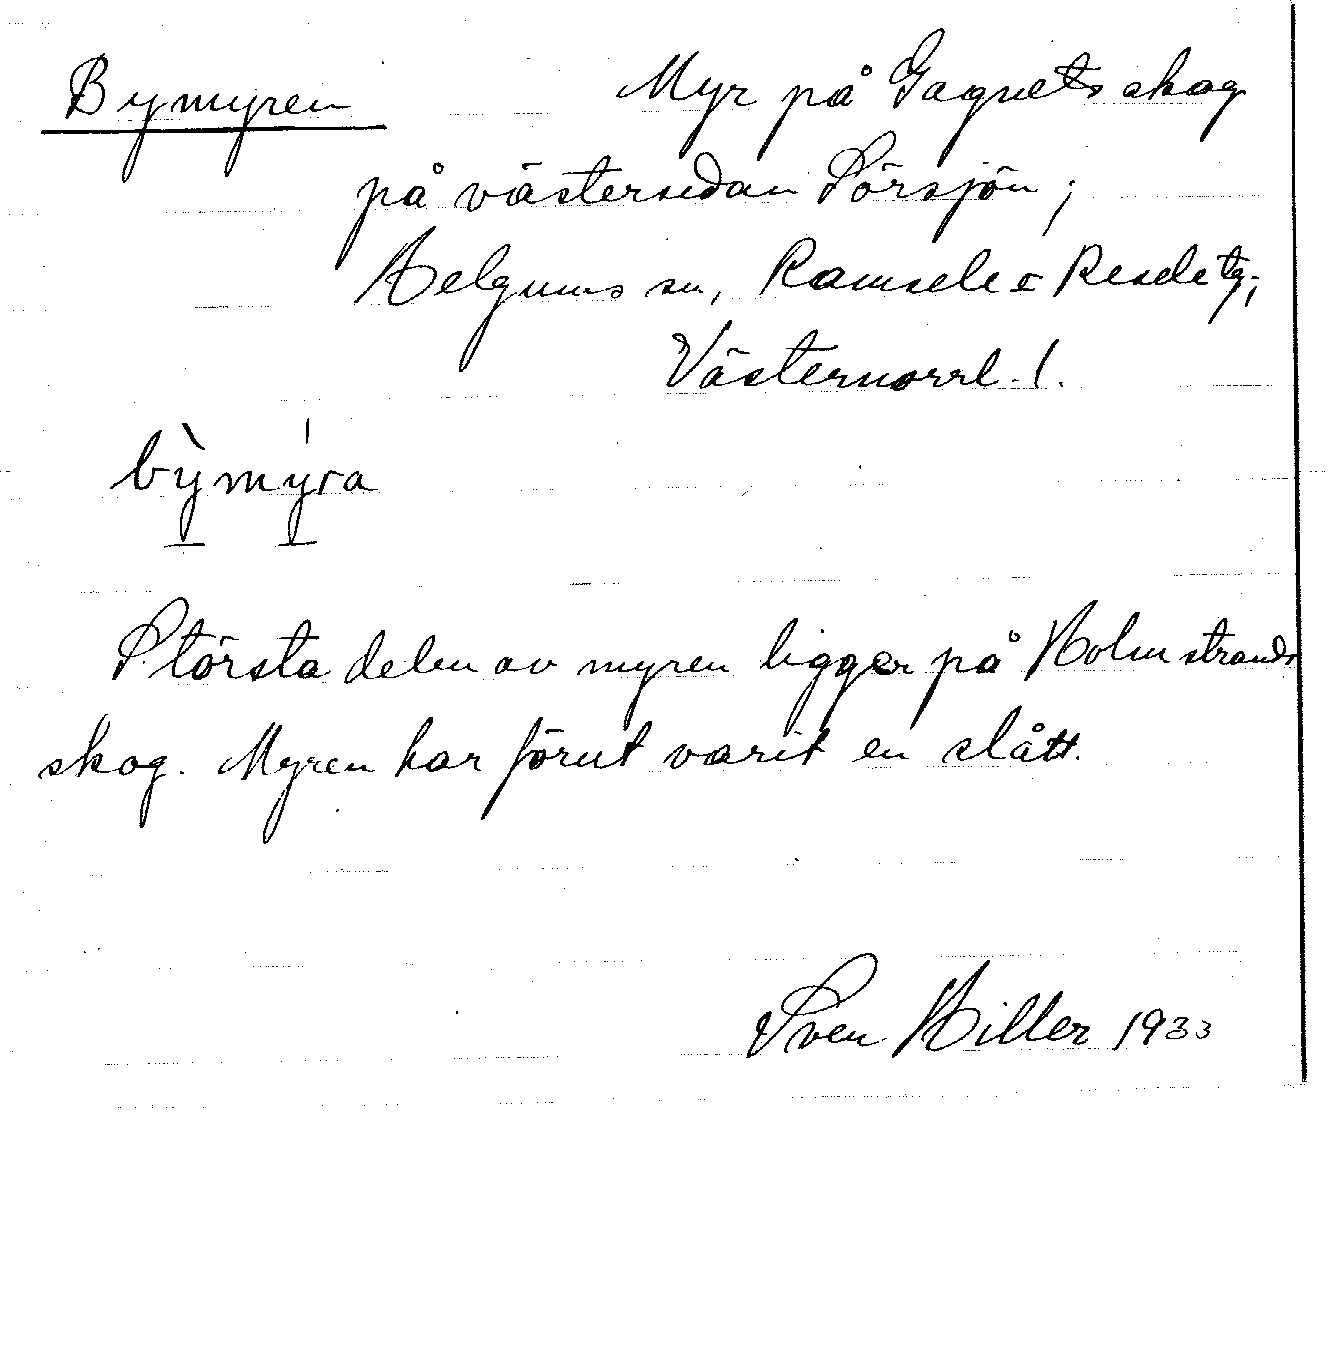 Bymyren Myr på Gagnets skog
på västersidan Sörsjön;
Helgums sn, Ramsele o Resele tg;
Västernorrl. l.
bỳmýra
Största delen av myren ligger på Holmstrands
skog. Myren har förut varit en slått.
Sven Hiller 1933